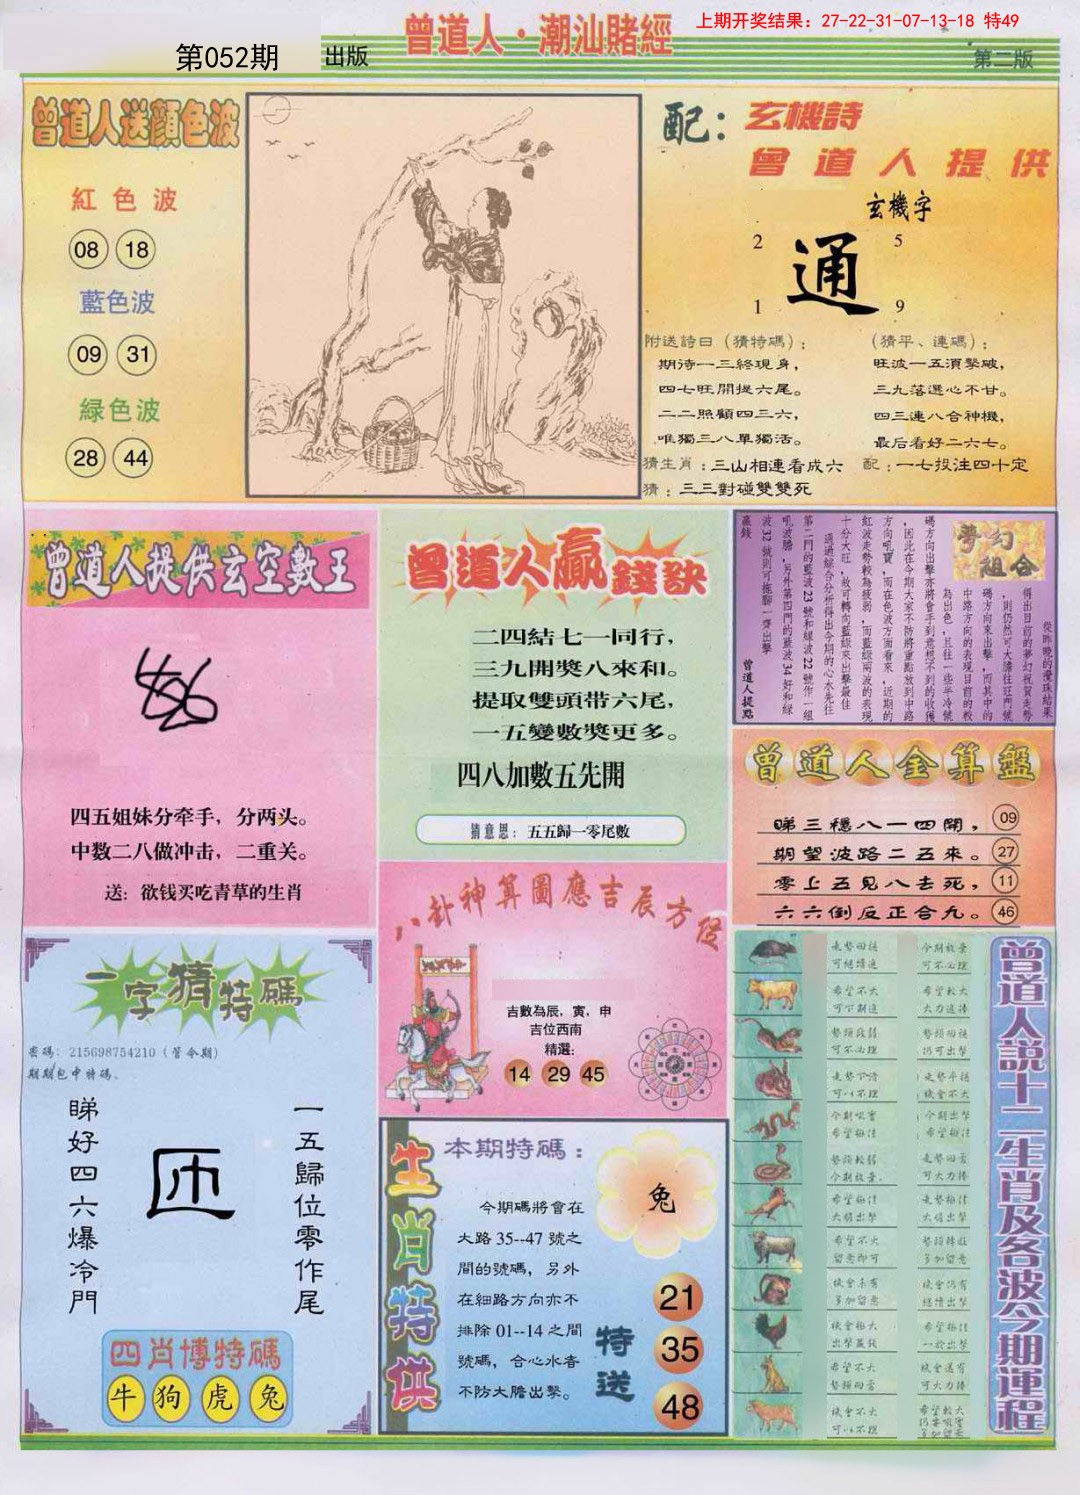 上期开奖结果：27-22-31-07-13-18 特49
曾道人·潮汕賭經
第052期 出版
第二版
曾道人送顔色波
紅色波
08 18
藍色波
09 31
緑色波
28 44
配：玄機詩
曾道人提供
玄機字
2 5
通
1 9
附送詩曰（猜特碼）：
期待一三終現身，
四七旺開提六尾。
二二照顧四三六，
唯獨三八單獨活。
（猜平、連碼）：
旺波一五須擊破，
三九落選心不甘。
四三連八合神機，
最后看好二六七。
猜生肖：三山相連看成六 配：一七投注四十定
猜：三三對碰雙雙死
曾道人提供玄空數王
四五姐妹分牵手，分两头。
中数二八做冲击，二重关。
送：欲钱买吃青草的生肖
曾道人贏錢訣
二四結七一同行，
三九開獎八來和。
提取雙頭带六尾，
一五變數獎更多。
四八加數五先開
猜意思：五五歸一零尾數
夢幻組合
從昨晚的攪珠結果
得出目前的夢幻祝賀走勢
，則仍然可大膽往旺門號
碼方向來出擊，而其中的
中路方向的表現目前的較
為出色，且往一些半冷號
碼方向出擊亦將會手到意想不到的收獲
，因此在今期大家不防將重點放到中路
方向吼寶，而在色波方面看來，近期的
紅波走勢較為疲弱，而藍緑兩波的表現
十分大旺，故可轉向藍緑來出擊最佳
通過綜合分析得出今期的心水先往
第二門的藍波23號和緑波22號作一組
吼波膽，另外第四門的藍波34好和緑
波32號則可拖腳一齊出擊
贏錢
曾道人提點
曾道人金算盤
睇三穩八一四開， 09
期望波路二五來。 27
零上五見八去死， 11
六六倒反正合九。 46
八卦神算圖應吉辰方位
吉數為辰，寅，申
吉位西南
精選：
14 29 45
一字猜特碼
密碼：215698754210（管令期）
期期包中特碼、
睇好四六爆冷門
一五歸位零作尾
四肖博特碼
牛 狗 虎 兔
生肖特供
本期特碼：
今期碼將會在
大路35--47號之
間的號碼，另外
在細路方向亦不
排除01--14之間
號碼，合心水者
不防大膽出擊。
兔
特送
21
35
48
曾道人説十二生肖及各波今期運程